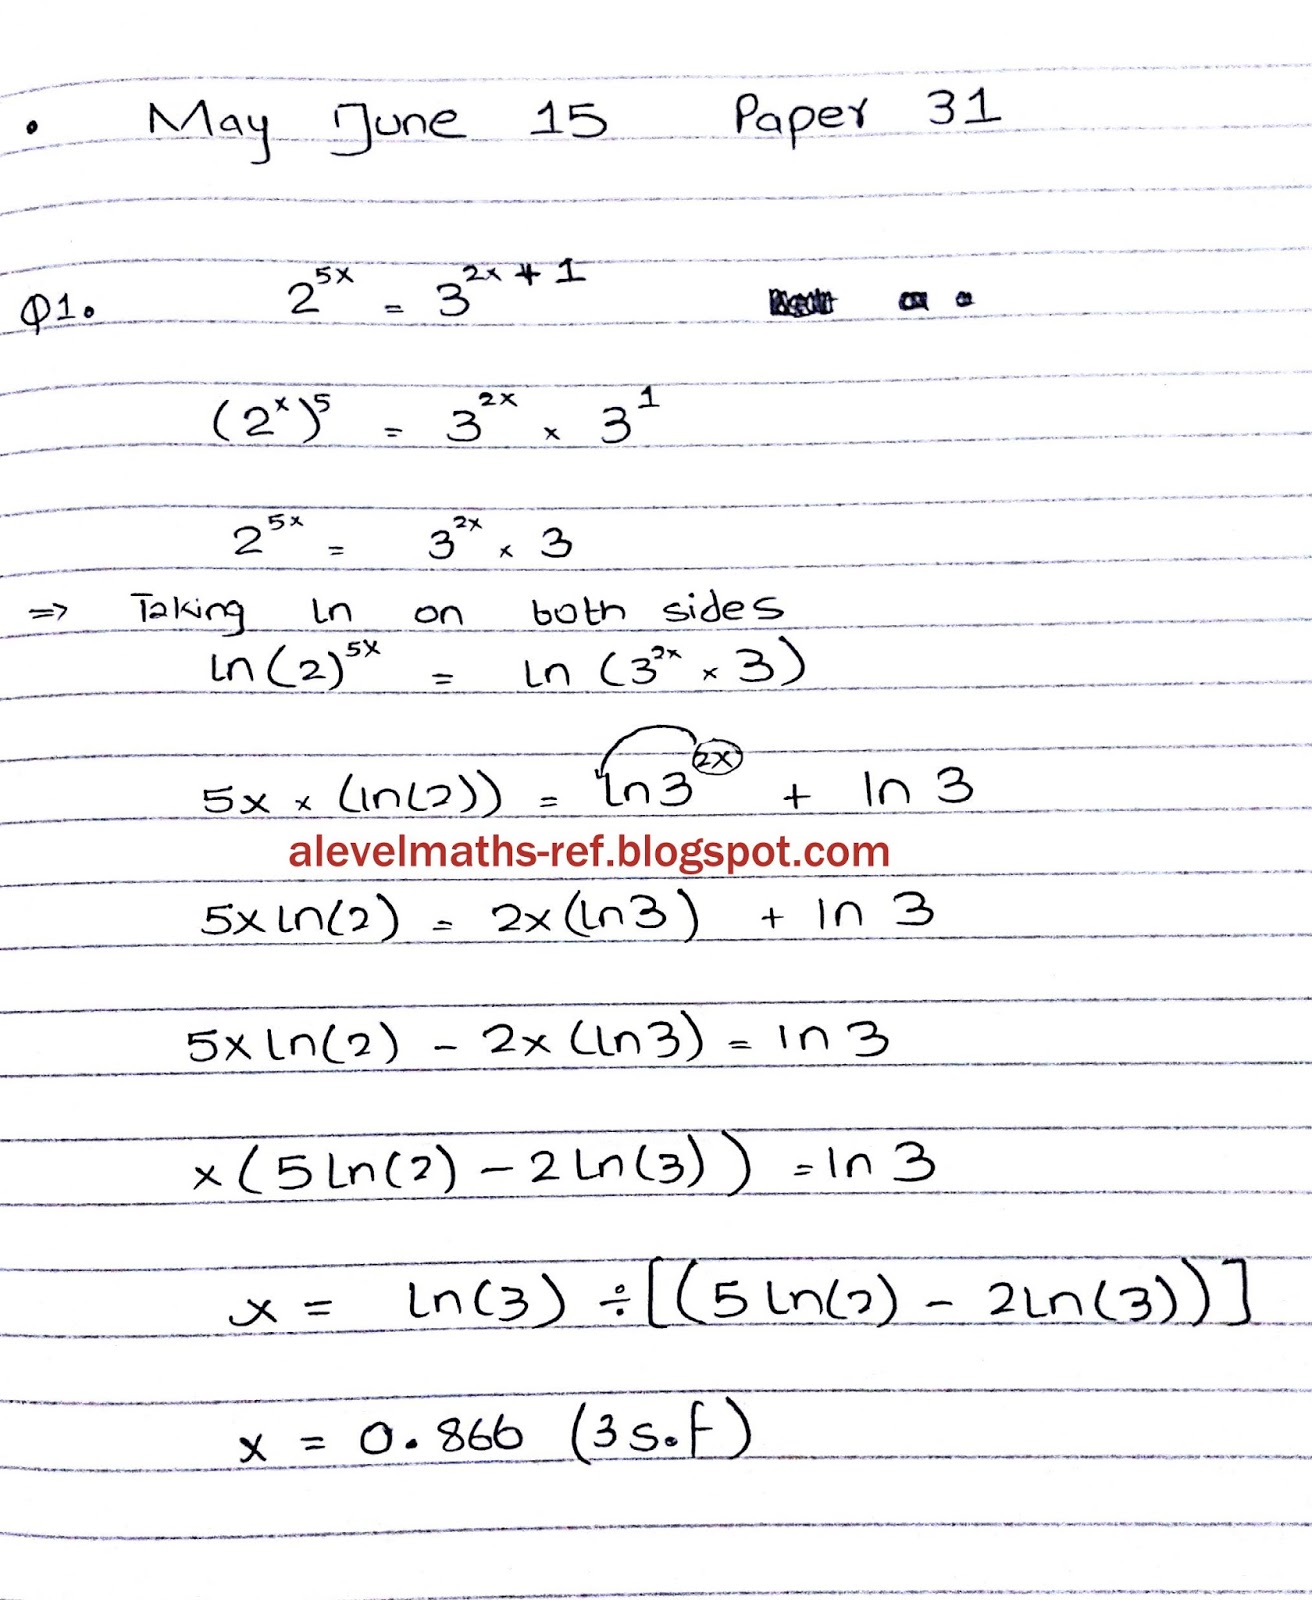 • May June 15 Paper 31
Q1. 2^5x = 3^2x + 1
(2^x)^5 = 3^2x × 3^1
2^5x = 3^2x × 3
⇒ Taking ln on both sides
ln(2)^5x = ln (3^2x × 3)
5x × (ln(2)) = ln3^2x + ln 3
alevelmaths-ref.blogspot.com
5x ln(2) = 2x(ln3) + ln 3
5x ln(2) - 2x (ln3) = ln 3
x(5 ln(2) - 2 ln(3)) = ln 3
x = ln(3) ÷ [(5 ln(2) - 2ln(3))]
x = 0.866 (3 s.f)